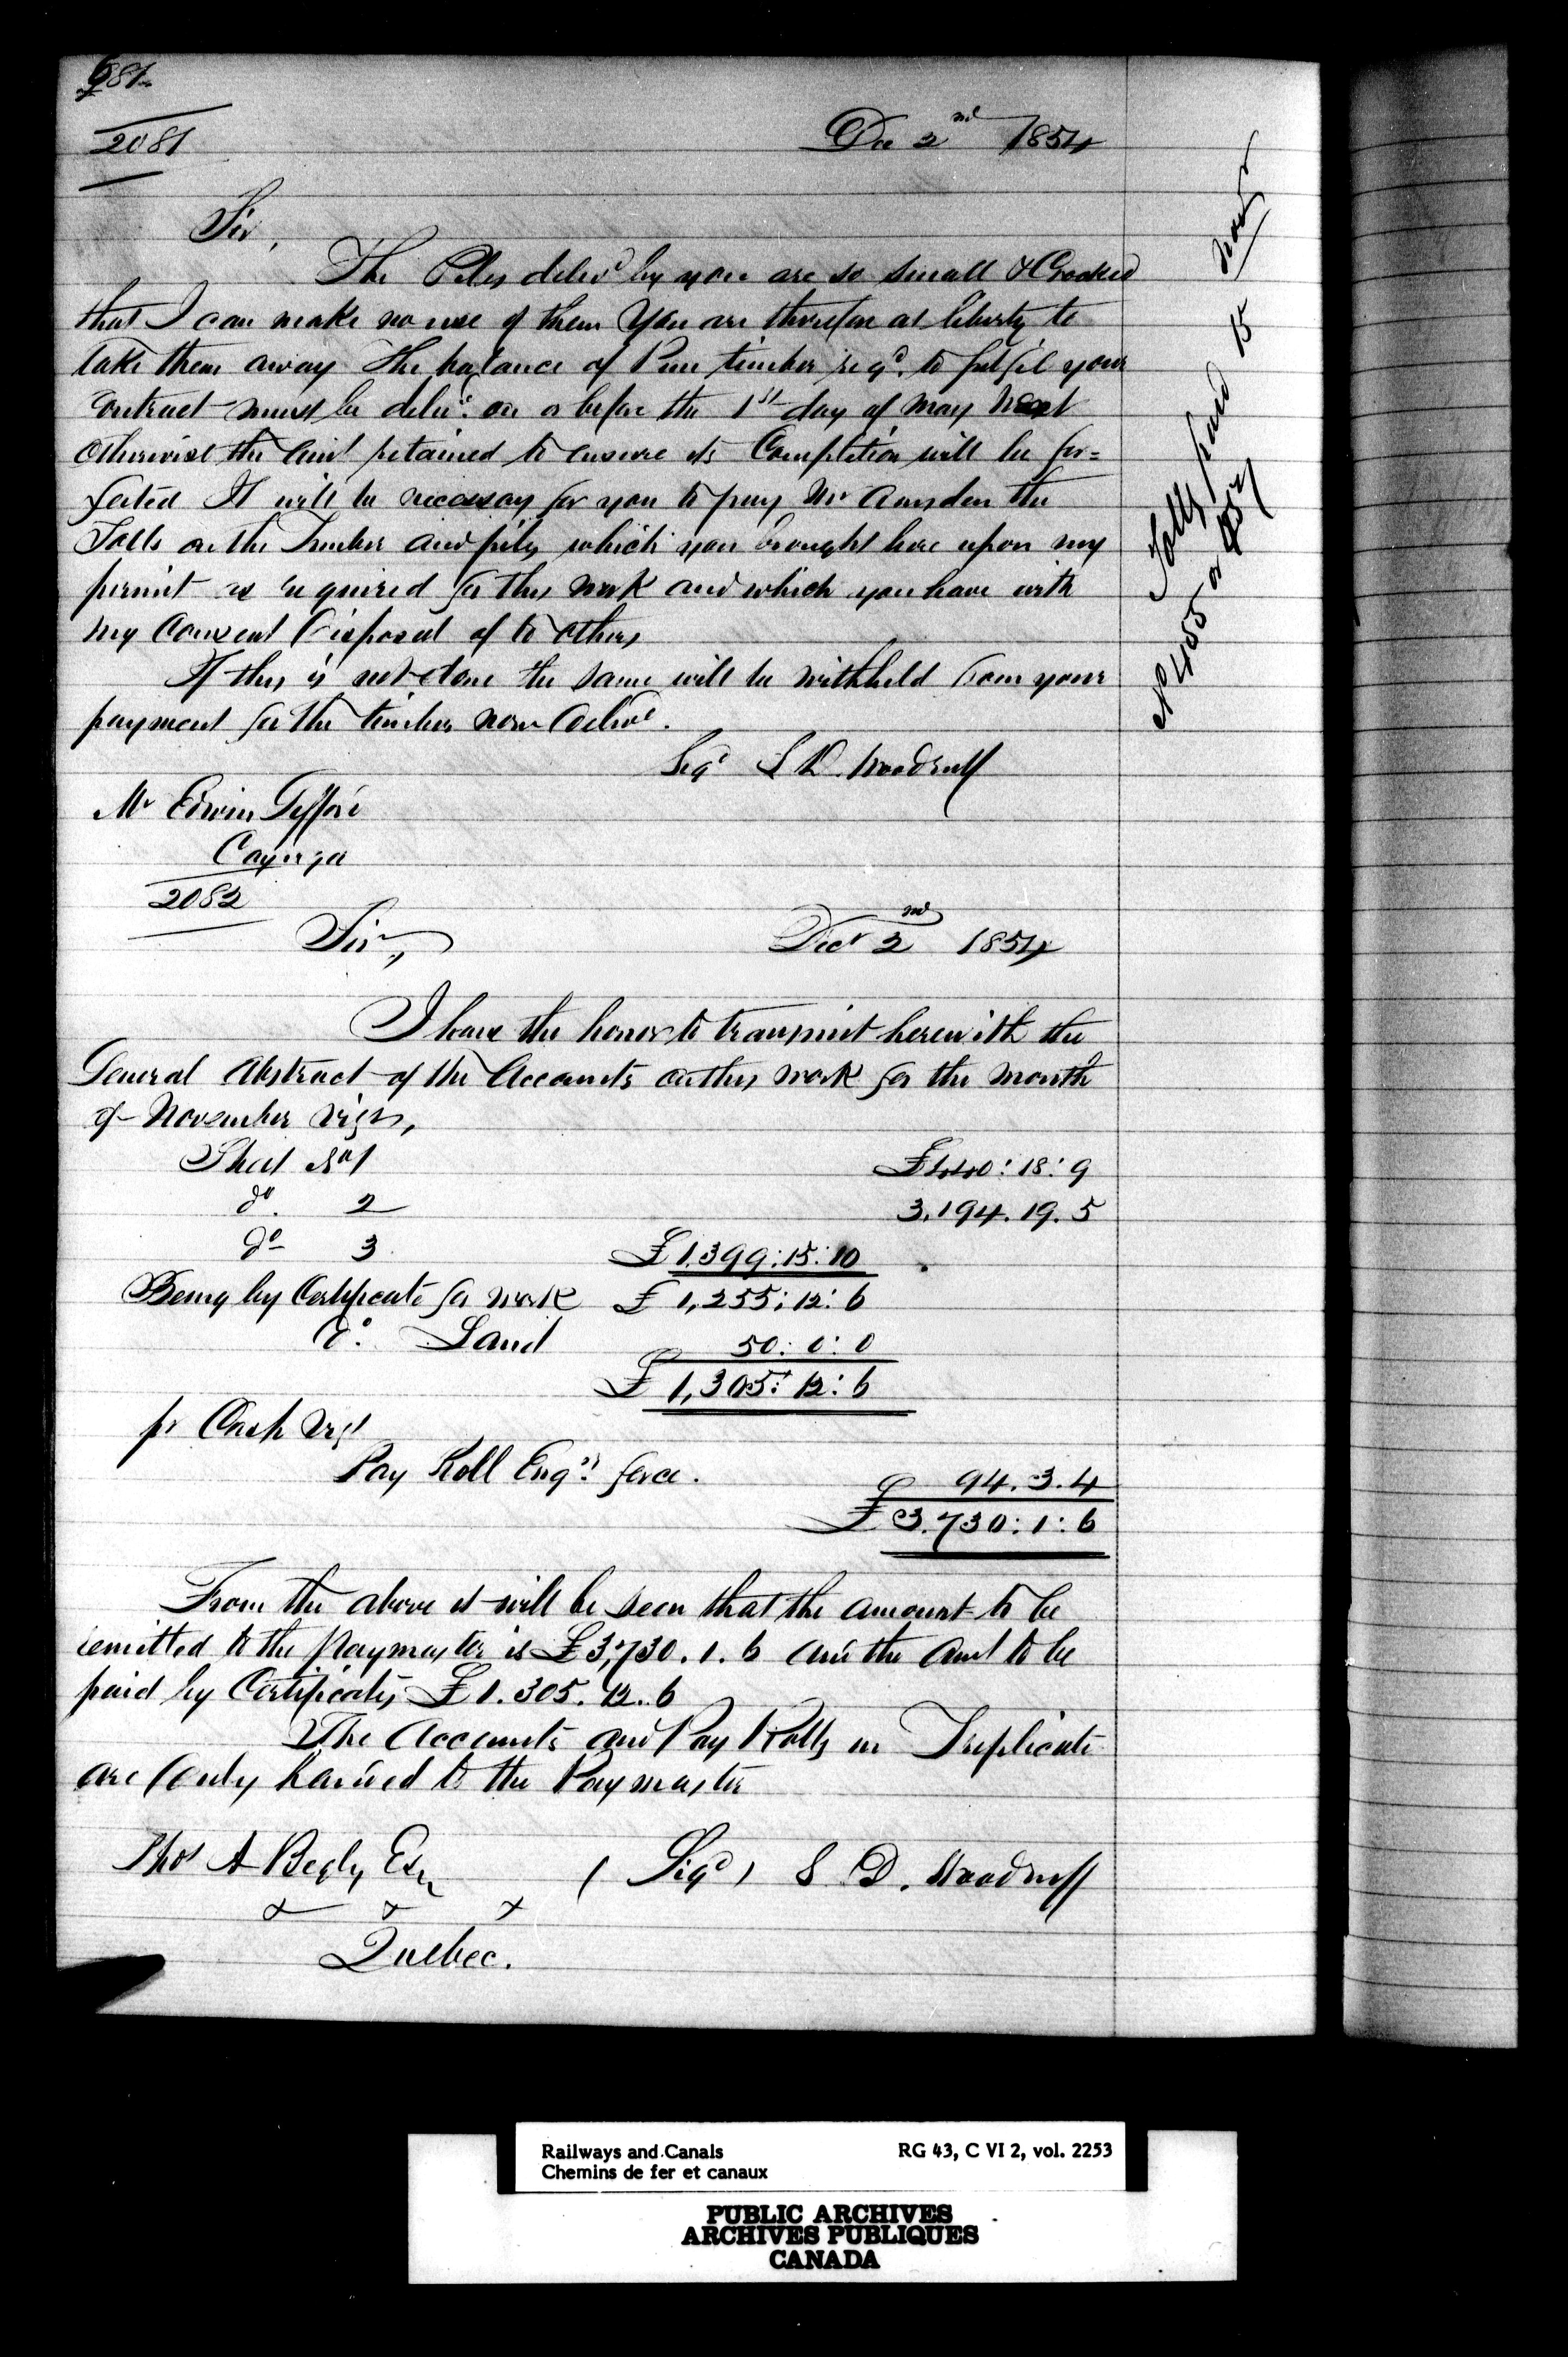 681
2081
Dec 2nd 1854
Sir,
The Piles delivd by you are so small & Crooked
that I can make no use of them You are therefore at liberty to
take them away The balance of Pine timber reqd. to fulfil your
Contract must be delivd. on or before the 1st day of May Next
Otherwise the Amt retained to ensure its Completion will be for=
feited It will be necessary for you to pay Mr Amsden the
Tolls on the Timber and piles which you brought here upon my
permit as required for this work and which you have with
my Consent Disposed of to others
If this is not done the same will be withheld from your
payment for the timber now Delivd.
Sigd S D. Woodruff
Mr Edwin
Cayuga
Tolls paid 15 Novr
No 455 or 452
2082
Sir,
Decr 2nd 1854
I have the honor to transmit herewith the
General Abstract of the Accounts on this work for the month
of November viz,
Sheet No 1 £440:18:9
do. 2 3,194.19.5
do 3 £1,399:15:10
Being by Certificate for work £1,255:12:6
do. Land 50:0:0
£1,305:12:6
pr Cash viz
Pay Roll Engrs force. 94.3.4
£3.730:1:6
From the above it will be seen that the amount to be
remitted to the Paymaster is £3,730.1.6 and the Amt to be
paid by Certificates £1.305.12.6
The Accounts and Pay Rolls in Triplicate
are (only handed to the Paymaster
Thos A Begly Esq
(Sigd) S D. Woodruff
Quebec.
Railways and Canals RG 43, C VI 2, vol. 2253
Chemins de fer et canaux
PUBLIC ARCHIVES
ARCHIVES PUBLIQUES
CANADA